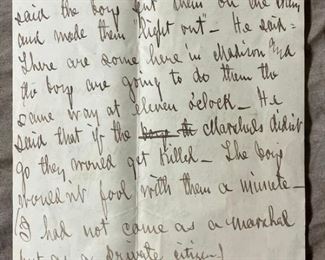 said the boys sent them on the way
and made them "light out" - He said -
There are some here in Madison and
the boys are going to do them the
same way at eleven o'clock - He
said that if the Marshals didnt
go they would get killed - The boys
wouldn't fool with them a minute -
I had not come as a marshal
but as a private citizen!